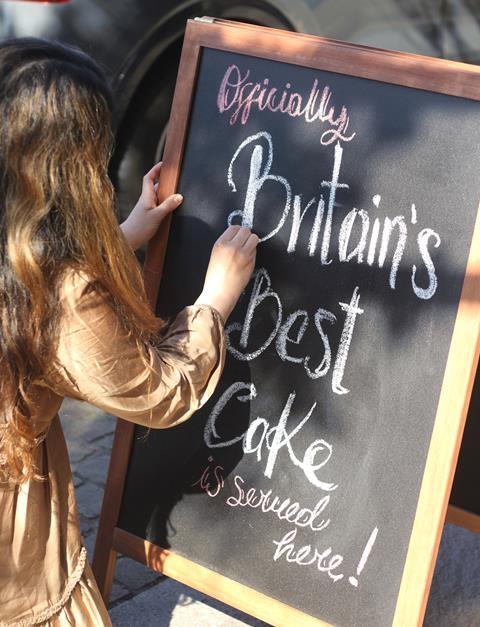 Officially
Britain's
Best
Cake
is served
here!